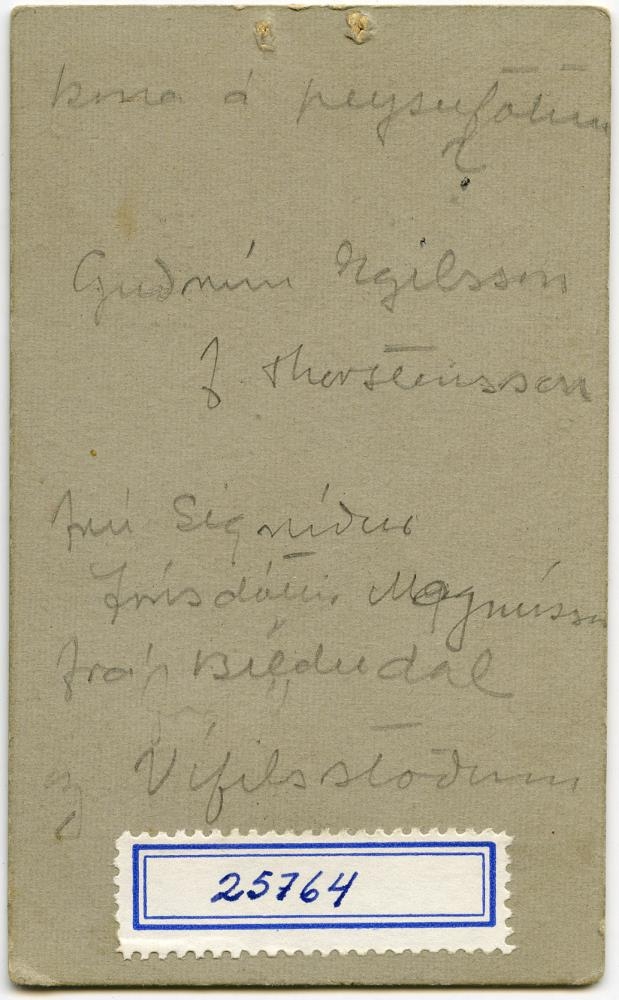 kona á peysufötum
?
Guðrún Egilsson
f Thorsteinsson
frú Sigríður
Jónsdóttir Magnússon
frá Bíldudal
og Vífilsstöðum
25764